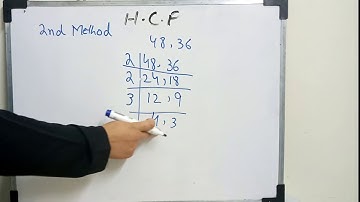 H.C.F
2nd Method
48, 36
2 48, 36
2 24, 18
3 12, 9
4, 3